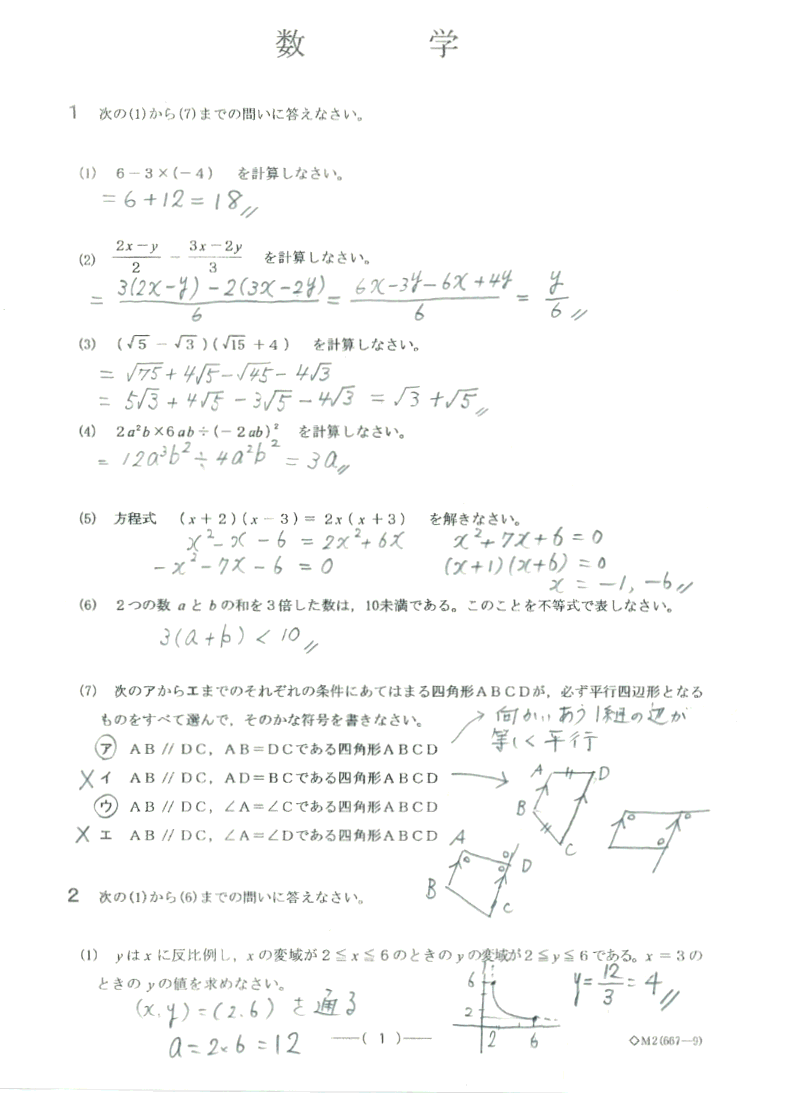 数 学
1 次の(1)から(7)までの問いに答えなさい。
(1) 6－3×(－4) を計算しなさい。
= 6 + 12 = 18 //
(2) (2x－y)/2 － (3x－2y)/3 を計算しなさい。
= (3(2x-y) - 2(3x-2y))/6 = (6x-3y-6x+4y)/6 = y/6 //
(3) (√5 － √3)(√15 ＋4) を計算しなさい。
= √75 + 4√5 - √45 - 4√3
= 5√3 + 4√5 - 3√5 - 4√3 = √3 + √5 //
(4) 2a²b×6ab÷(－2ab)² を計算しなさい。
= 12a³b² ÷ 4a²b² = 3a //
(5) 方程式 (x＋2)(x－3)＝2x(x＋3) を解きなさい。
x² - x - 6 = 2x² + 6x x² + 7x + 6 = 0
-x² - 7x - 6 = 0 (x+1)(x+6) = 0
x = -1, -6 //
(6) 2つの数 a と b の和を3倍した数は，10未満である。このことを不等式で表しなさい。
3(a+b) < 10 //
(7) 次のアからエまでのそれぞれの条件にあてはまる四角形ＡＢＣＤが，必ず平行四辺形となる
ものをすべて選んで，そのかな符号を書きなさい。
→ 向かいあう1組の辺が
等しく平行
ア ＡＢ // ＤＣ，ＡＢ＝ＤＣである四角形ＡＢＣＤ
X イ ＡＢ // ＤＣ，ＡＤ＝ＢＣである四角形ＡＢＣＤ →
A D
B
C
ウ ＡＢ // ＤＣ，∠Ａ＝∠Ｃである四角形ＡＢＣＤ
X エ ＡＢ // ＤＣ，∠Ａ＝∠Ｄである四角形ＡＢＣＤ
A
D
B
C
2 次の(1)から(6)までの問いに答えなさい。
(1) yはxに反比例し，xの変域が2≦x≦6のときのyの変域が2≦y≦6である。x＝3の
ときのyの値を求めなさい。
y = 12/3 = 4 //
(x, y) = (2, 6) を通る
6
2
2 6
a = 2×6 = 12
——( 1 )——
◇M2(667—9)